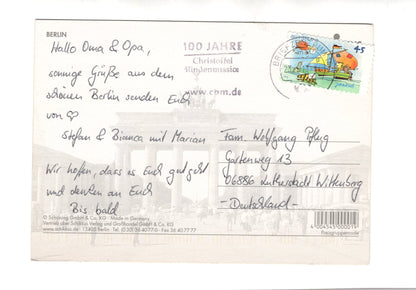 BERLIN
Hallo Oma & Opa,
sonnige Grüße aus dem
schönen Berlin senden Euch
von ♡
Stefan & Bianca mit Marian
Wir hoffen, dass es Euch gut geht
und denken an Euch
Bis bald
100 JAHRE
Christoffel
Blindenmission
www.cbm.de
BRIEFZENTRUM
45
Fam. Wolfgang Pflug
Gartenweg 13
06886 Lutherstadt Wittenberg
- Deutschland -
© Schöning GmbH & Co. KG · Made in Germany
Vertrieb über Schikkus Verlag und Großhandel GmbH & Co. KG
www.schikkus.de · 13405 Berlin
4 004343 000021
Preisgruppencode